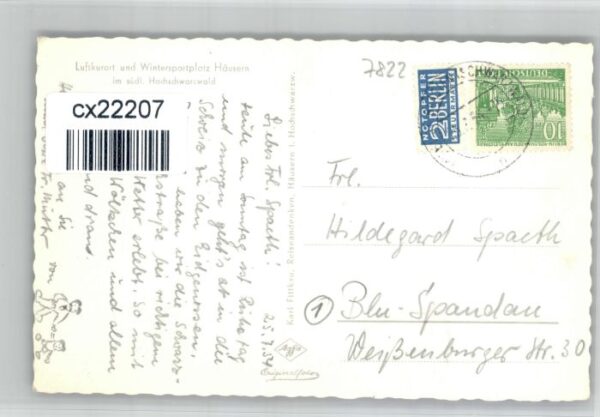 Luftkurort und Wintersportplatz Häusern
im südl. Hochschwarzwald
cx22207
25.7.54
Liebes Frl. Spaeth!
Heute am Sonntag ist Ruhetag
und morgen geht's ab in die
Schweiz zu den Eidgenossen.
haben wir die Schwarz-
straße bei richtigem
Wetter erlebt. So mit
Wölkchen und allem
und dran.
an Sie
Fr. Müther
von
Karl Fittkau, Reiseandenken, Häusern i. Hochschwarzw.
Agfa
Originalfoto
7822
NOTOPFER
2 BERLIN
STEUERMARKE
DEUTSCHE
10
Frl.
Hildegard Spaeth
1 Bln-Spandau
Weißenburger Str. 30